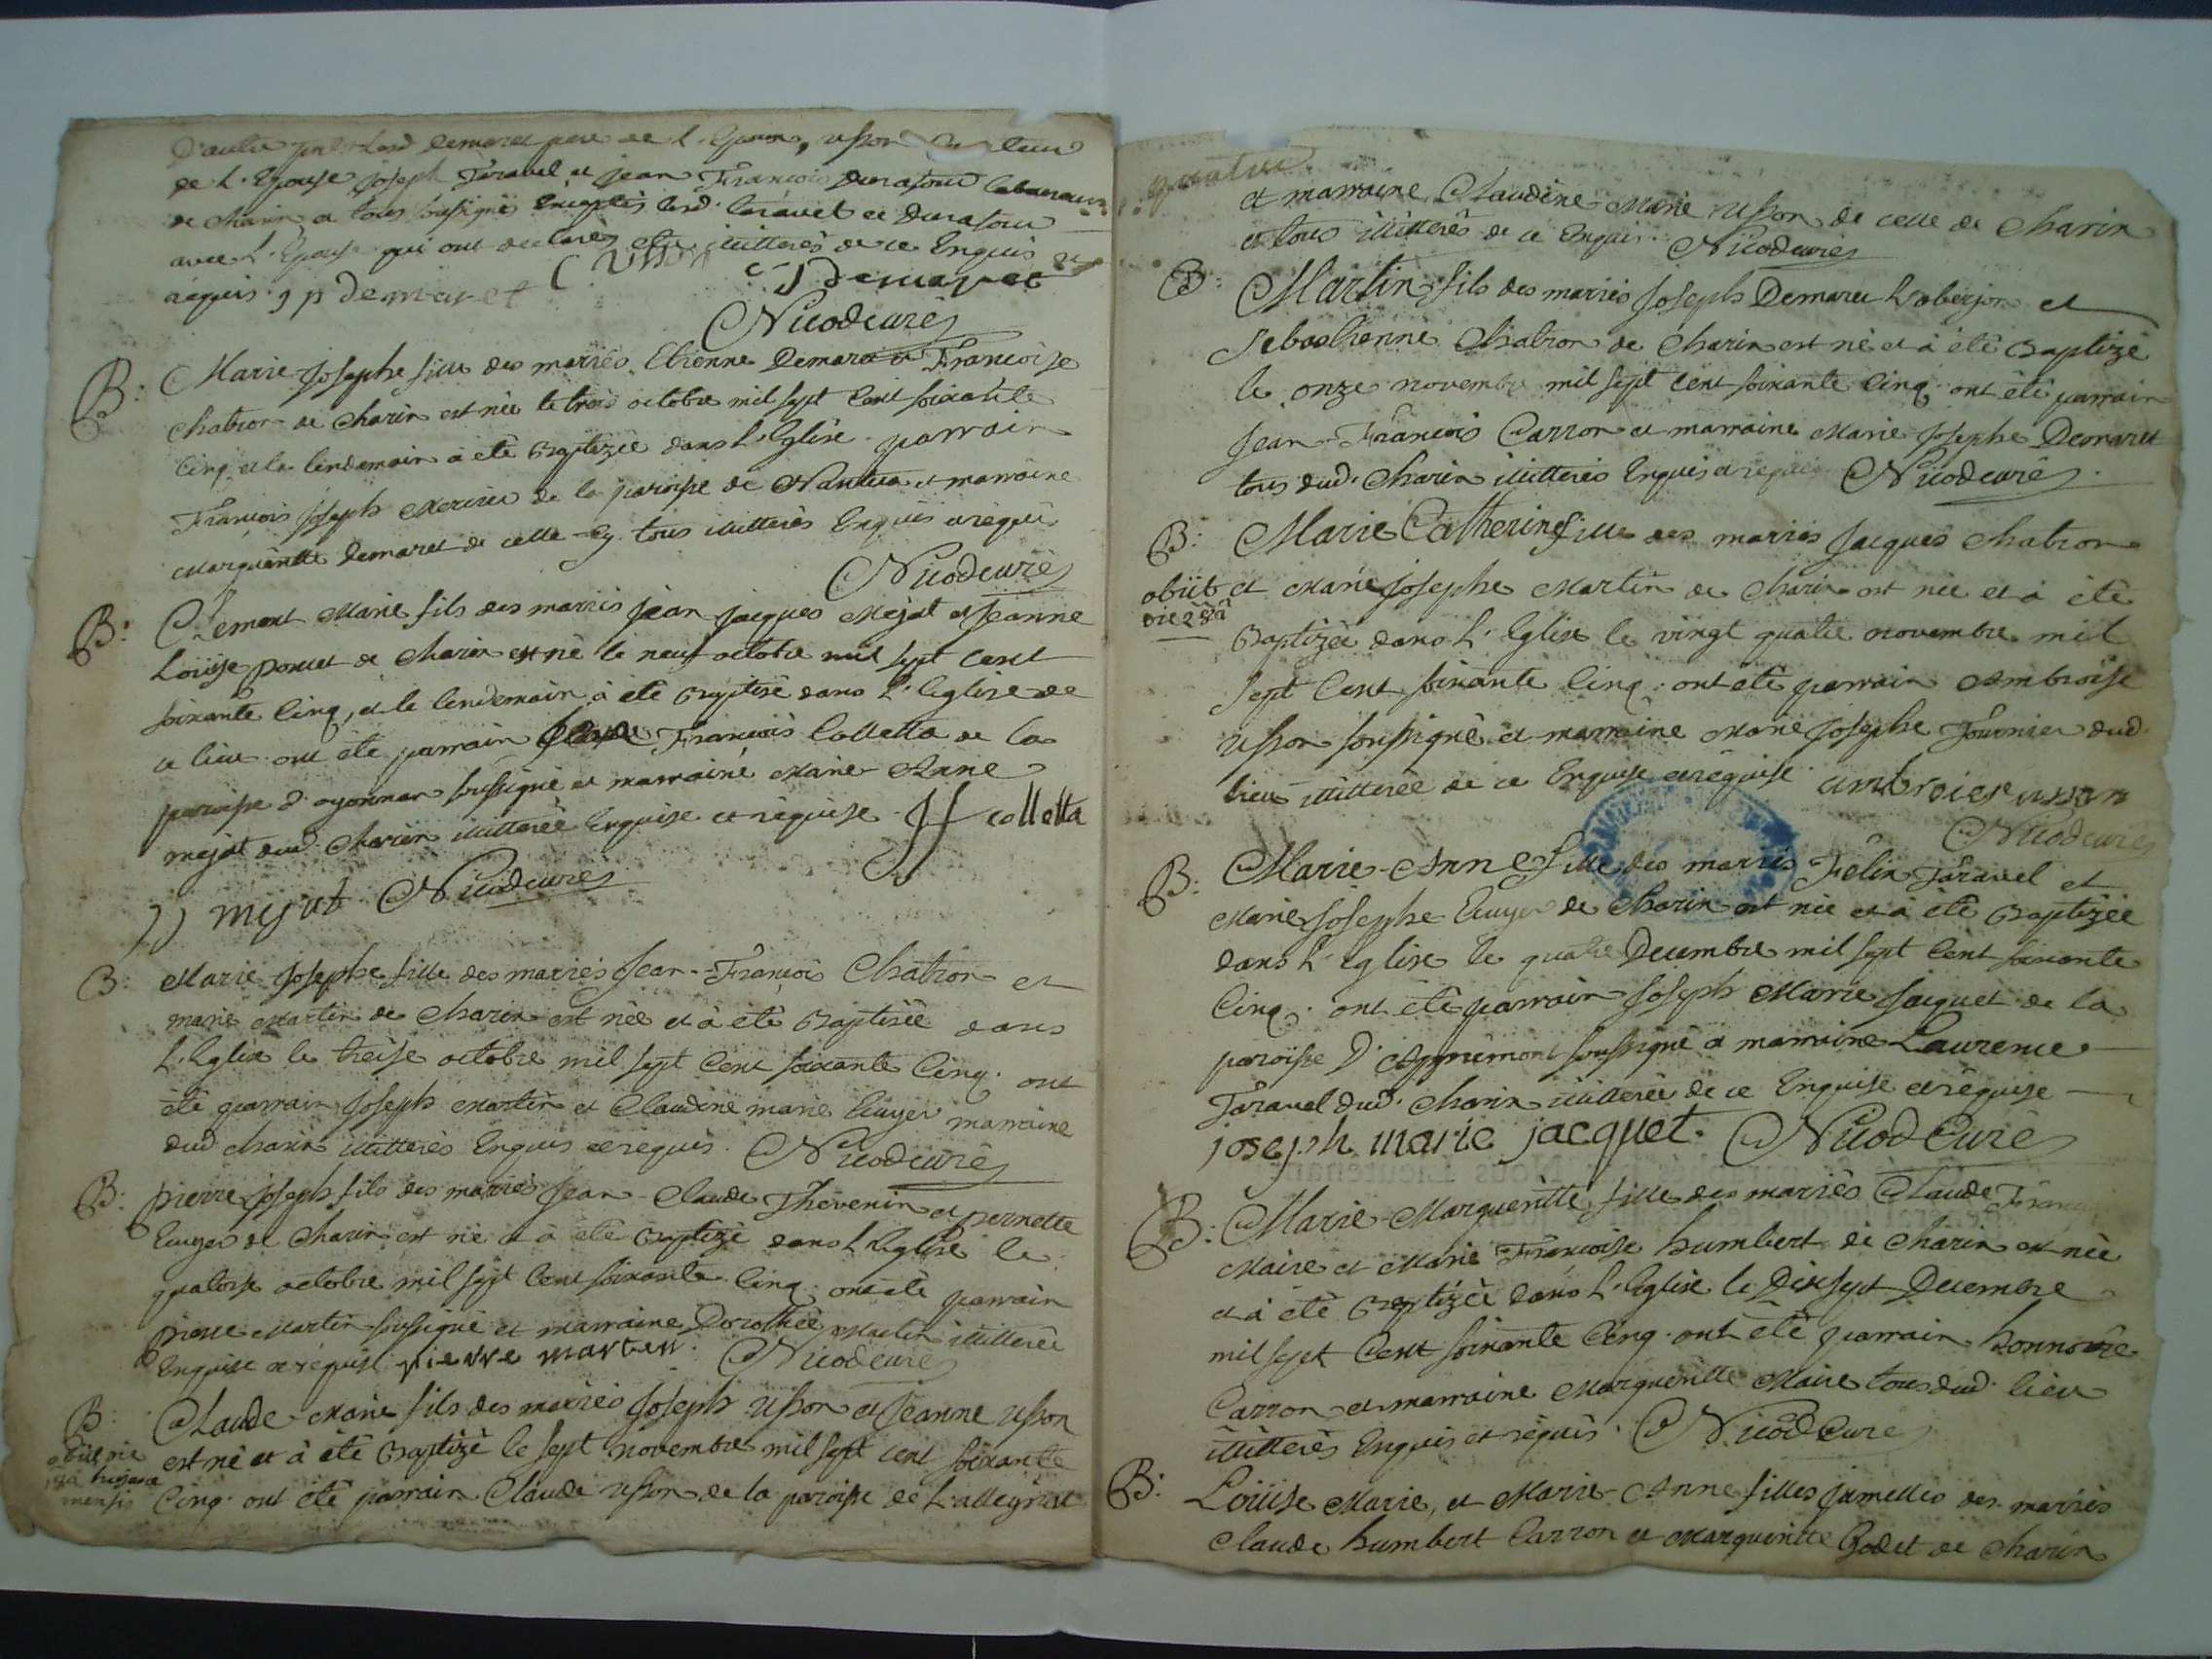 D'autre part led Demaret pere de l'Epoux, Usson
de l'Epouse Joseph Taravel et Jean François Durafour laboureurs
de Charix et tous soussignés Exceptés lesd. Taravel et Durafour
avec l'Epouse qui ont declarés etre illitterés de ce Enquis et
requis. j p demaret C Usson J Demaret
Nicod curé
B: Marie Josephe fille des mariés Etienne Demaret et Françoise
Chatron de Charix est née le trois octobre mil sept cent soixante
cinq et le lendemain à été Baptizée dans l'Eglise parrain
François Joseph Mercier de la paroisse de Nantua et marraine
Margueritte Demaret de celle-cy tous illitterés Enquis et requis
Nicod curé
B: Clement Marie fils des mariés Jean Jacques Mejat et Jeanne
Loüise poncet de Charix est né le neuf octobre mil sept cent
soixante cinq, et le lendemain à été Baptisé dans l'Eglise de
ce lieu ont été parrain François Colletta de la
paroisse d'oyonnax soussigné et marraine Marie-Anne
mejat dud. Charix illitterée Enquise et requise. JF colletta
JJ mejat Nicod curé
B: Marie Josephe fille des mariés Jean-François Chatron et
marie Martin de Charix est née et à été Baptisée dans
l'Eglise le treise octobre mil sept cent soixante cinq. ont
été parrain Joseph Martin et Claudine marie Ecuyer marraine
dud Charix illitterés Enquis et requis. Nicod curé
B: pierre Joseph fils des mariés Jean-Claude Thevenin et pernette
Ecuyer de Charix est né et à été Baptizé dans l'Eglise le
quatorse octobre mil sept cent soixante cinq. ont été parrain
pierre Martin soussigné et marraine Dorothée Martin illitterée
Enquise et requise pierre marten. Nicod curé
B: Claude-Marie fils des mariés Joseph Usson et Jeanne Usson
obiit die est né et à été Baptizé le sept novembre mil sept cent soixante
hujus mensis cinq. ont été parrain Claude Usson de la paroisse de Lalleyriat
quatre
et marraine Claudine Marie Usson de celle de Charix
et tous illitterés de ce Enquis. Nicod curé
B: Martin fils des mariés Joseph Demaret Loberjon et
Sebastienne Chatron de Charix est né et à été Baptizé
le onze novembre mil sept cent soixante cinq. ont été parrain
Jean-François Carron et marraine Marie-Josephe Demaret
tous dud. Charix illitterés Enquis et requis Nicod curé.
B: Marie Catherine fille des mariés Jacques Chatron
obiit et Marie Josephe Martin de Charix est née et à été
die 28a Baptizée dans l'Eglise le vingt quatre novembre mil
sept cent soixante cinq. ont été parrain Ambroise
Usson soussigné et marraine Marie Josephe Fournier dud.
lieu illitterée de ce Enquise et requise. ambroise usson
Nicod curé
B: Marie-Anne fille des mariés Felix Taravel et
Marie Josephe Ecuyer de Charix est née et à été Baptizée
dans l'Eglise le quatre Decembre mil sept cent soixante
cinq. ont été parrain Joseph Marie Jacquet de la
paroisse D'Appremont soussigné et marraine Laurence
Taravel dud. Charix illitterée de ce Enquise et requise
joseph marie jacquet. Nicod Curé
B: Marie-Margueritte fille des mariés Claude Françoi
Maire et Marie Françoise humbert de Charix est née
et à été Baptizée dans l'Eglise le Dix sept Decembre
mil sept cent soixante cinq. ont été parrain honnoré
Carron et marraine Margueritte Maire tous dud. lieu
illitterés Enquis et requis. Nicod Curé
B: Loüise Marie, et Marie-Anne filles jumelles des mariés
Claude humbert Carron et Margueritte Godet de Charix